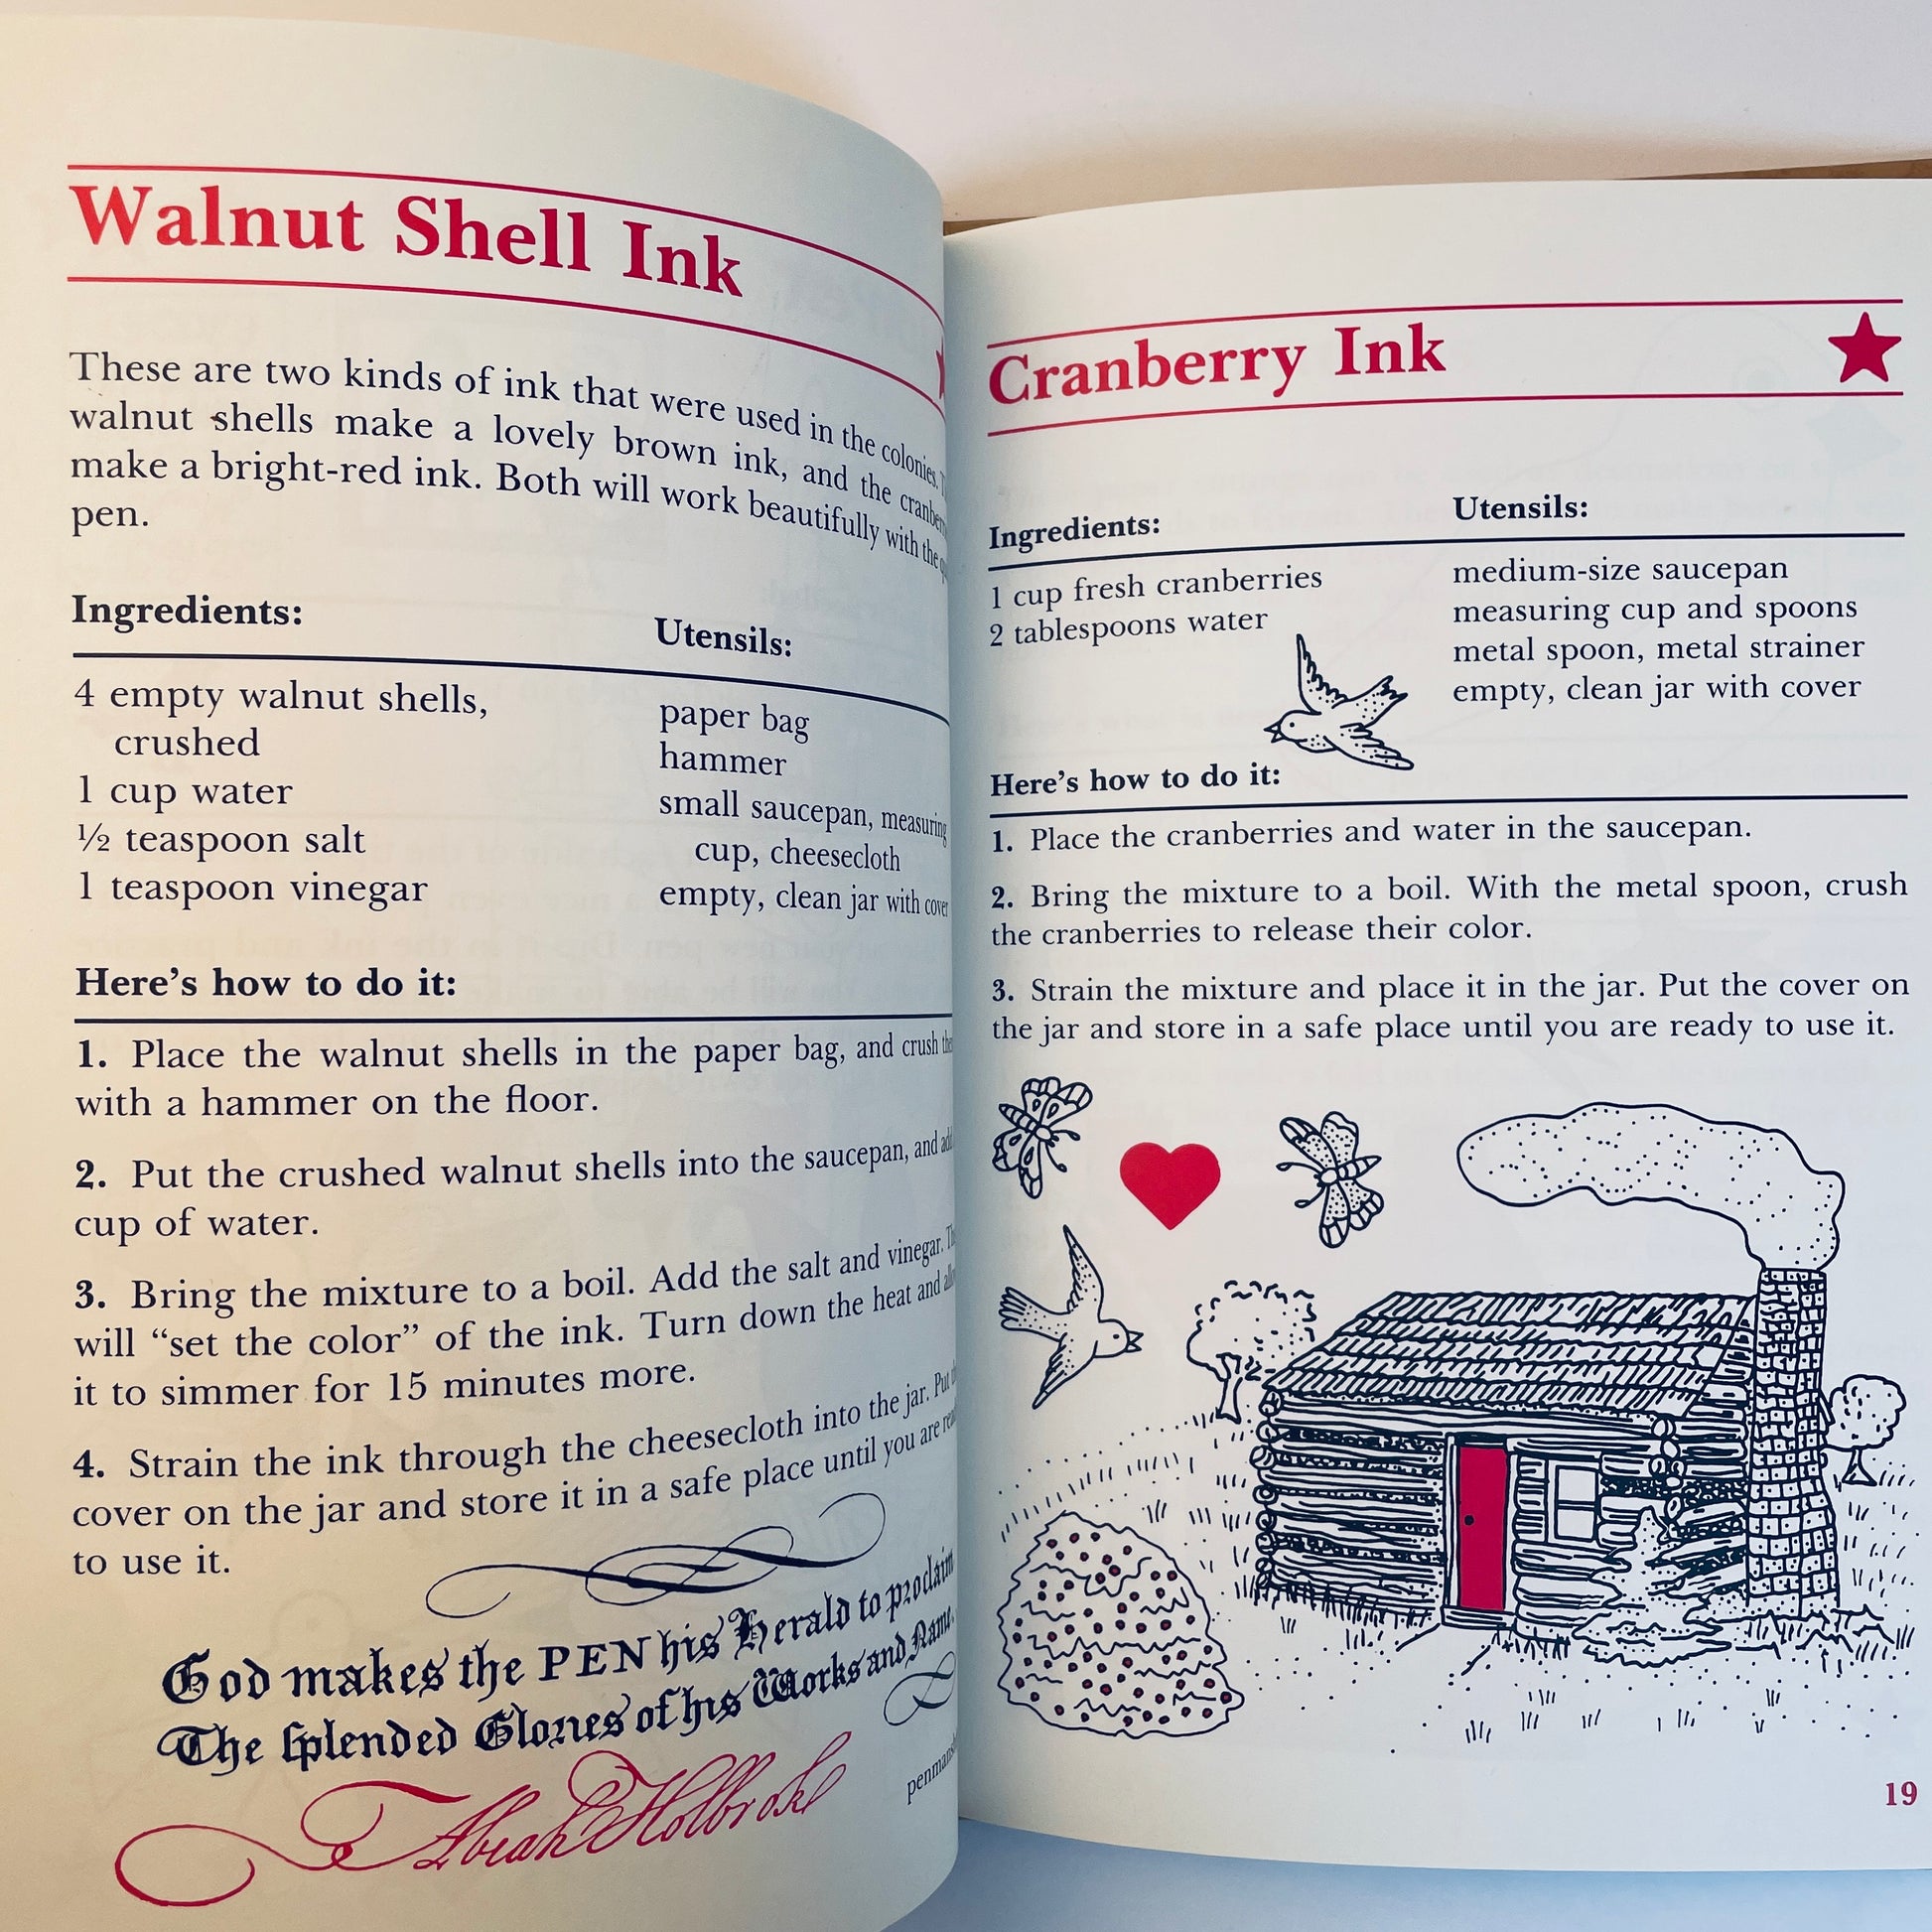 Walnut Shell Ink
These are two kinds of ink that were used in the colonies.
walnut shells make a lovely brown ink, and the
make a bright-red ink. Both will work beautifully with the
pen.
Ingredients:
4 empty walnut shells,
crushed
1 cup water
½ teaspoon salt
1 teaspoon vinegar
Utensils:
paper bag
hammer
small saucepan, measuring
cup, cheesecloth
empty, clean jar with cover
Here's how to do it:
1. Place the walnut shells in the paper bag, and crush
with a hammer on the floor.
2. Put the crushed walnut shells into the saucepan, and
cup of water.
3. Bring the mixture to a boil. Add the salt and vinegar.
will “set the color” of the ink. Turn down the heat and
it to simmer for 15 minutes more.
4. Strain the ink through the cheesecloth into the jar. Put
cover on the jar and store it in a safe place until you are
to use it.
God makes the PEN his Herald to proclaim
The Splended Glories of his Works and Name.
Abiah Holbrook
Cranberry Ink
Ingredients:
1 cup fresh cranberries
2 tablespoons water
Utensils:
medium-size saucepan
measuring cup and spoons
metal spoon, metal strainer
empty, clean jar with cover
Here's how to do it:
1. Place the cranberries and water in the saucepan.
2. Bring the mixture to a boil. With the metal spoon, crush
the cranberries to release their color.
3. Strain the mixture and place it in the jar. Put the cover on
the jar and store in a safe place until you are ready to use it.
19